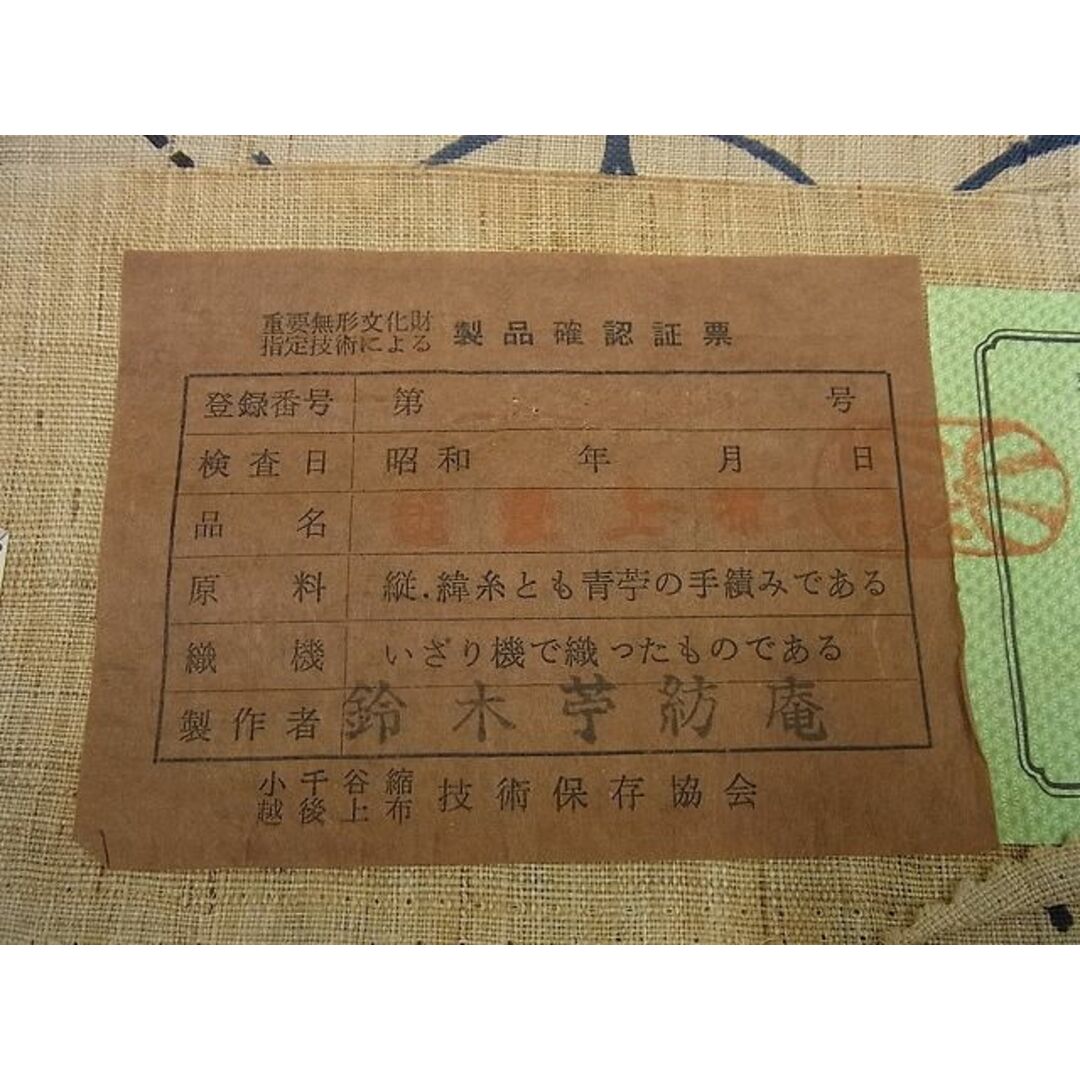 重要無形文化財
指定技術による 製品確認証票
登録番号 第 号
検査日 昭和 年 月 日
品名
原料 縦.緯糸とも青苧の手績みである
織機 いざり機で織ったものである
製作者 鈴木苧紡庵
小千谷縮
越後上布 技術保存協会